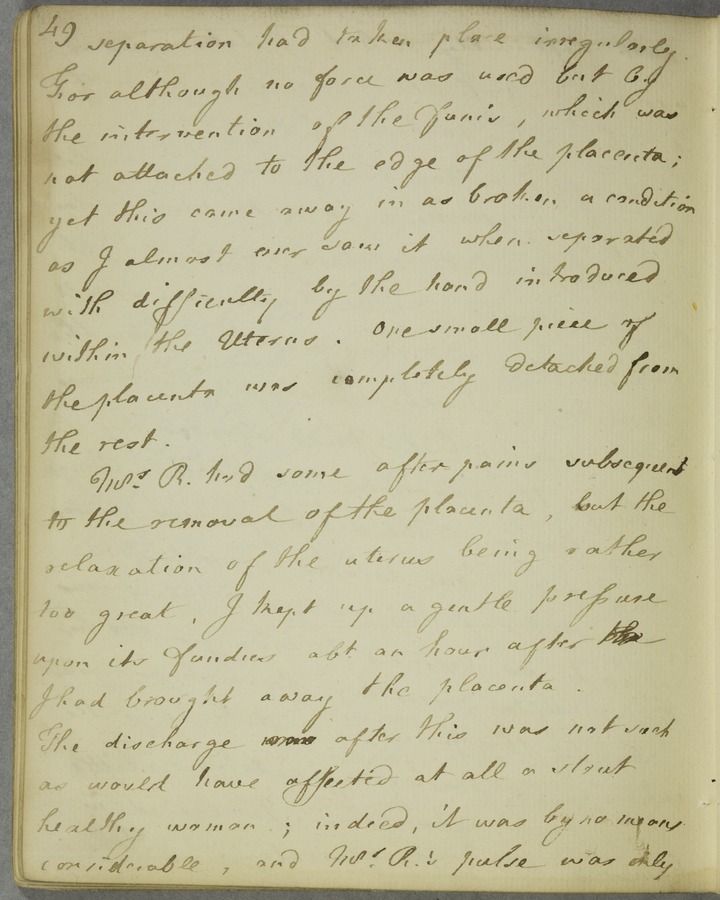 49
separation had taken place irregularly.
For although no force was used but by
the intervention of the Funis, which was
not attached to the edge of the placenta;
yet this came away in as broken a condition
as I almost ever saw it when separated
with difficulty by the hand introduced
within the Uterus. One small piece of
the placenta was completely detached from
the rest.
Mrs. R. had some after pains subsequent
to the removal of the placenta, but the
relaxation of the uterus being rather
too great, I kept up a gentle pressure
upon its fundus abt an hour after
I had brought away the placenta.
The discharge after this was not such
as would have affected at all a stout
healthy woman; indeed, it was by no means
considerable, and Mrs. R.'s pulse was only